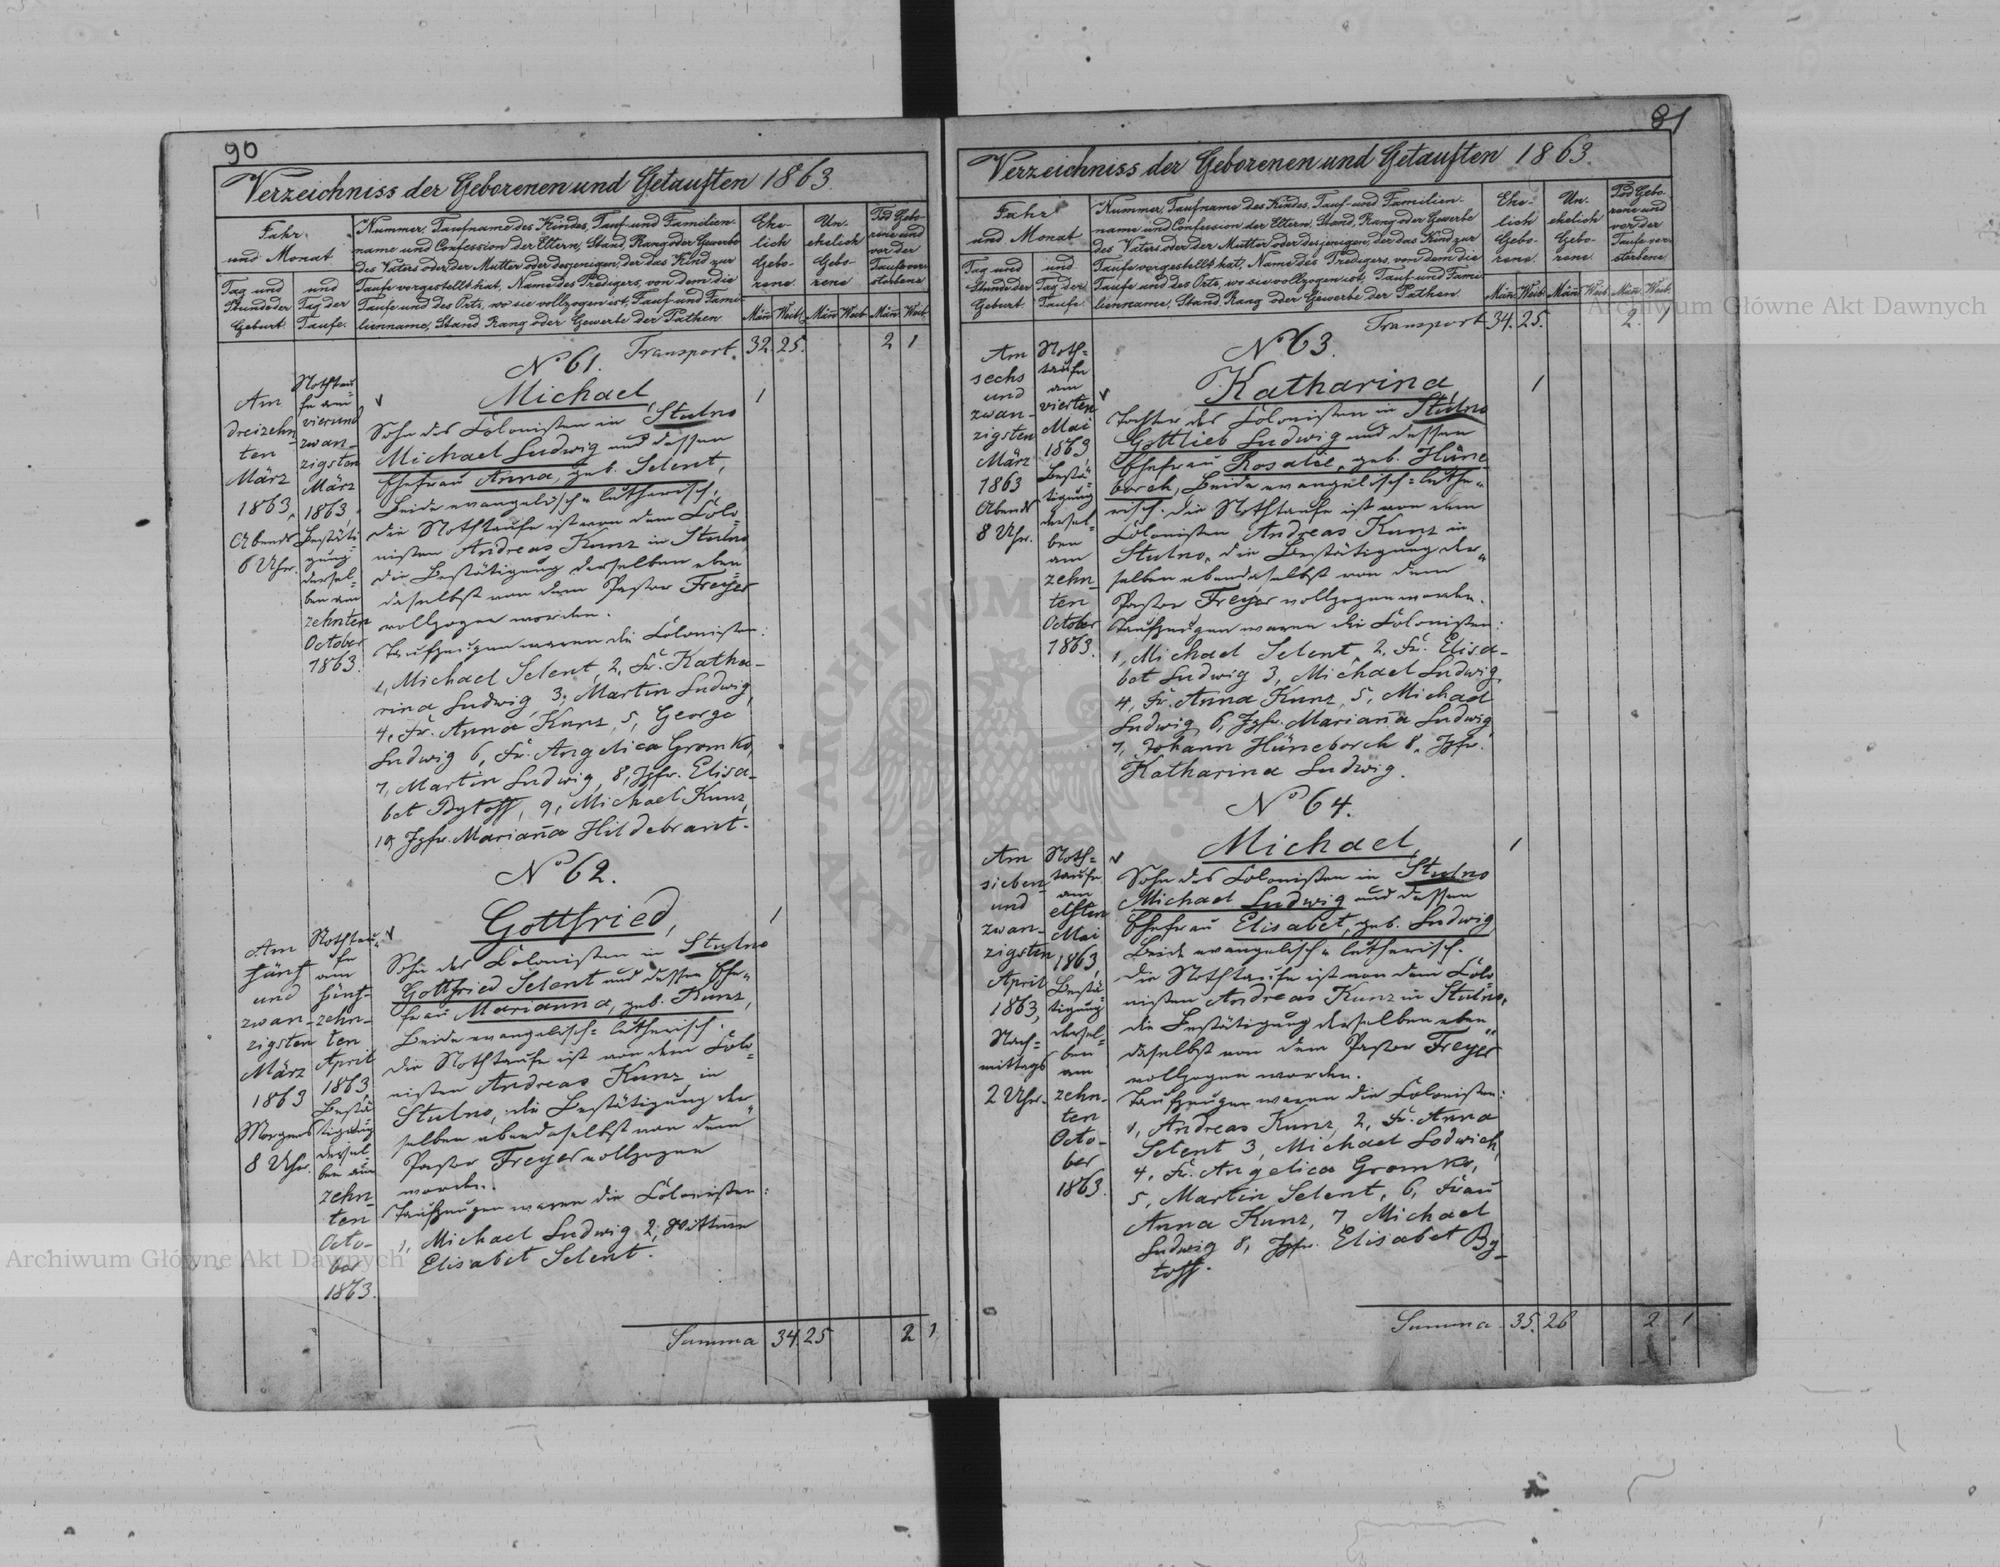 90
Verzeichniss der Geborenen und Getauften 1863.
Jahr
und Monat
Tag und
Stunde der
Geburt.
und
Tag der
Taufe.
Nummer, Taufname des Kindes, Tauf- und Familien-
name und Confession der Eltern, Stand, Rang oder Gewerbe
des Vaters oder der Mutter oder desjenigen, der das Kind zur
Taufe vorgestellt hat, Name des Predigers, von dem die
Taufe und des Orts, wo sie vollzogen ist, Tauf- und Fami-
lienname, Stand Rang oder Gewerbe der Pathen.
Ehe-
lich
Gebo-
rene.
Un-
ehelich
Gebo-
rene
Tod Gebo-
rene und
vor der
Taufe ver-
storbene
Män̄ Weib. Män̄ Weib Män̄ Weib.
Transport. 32. 25. 2 1
No 61.
Michael
1
Am
dreizehn
ten
März
1863,
Abends
6 Uhr.
Nothtau-
fe am
vierund
zwan-
zigsten
März
1863.
Bestäti-
gung
dersel-
ben am
zehnten
October
1863.
Sohn des Colonisten in Stulno
Michael Ludwig und dessen
Ehefrau Anna, geb. Selent,
Beide evangelisch-lutherisch.
Die Nothtaufe ist von dem Colo-
nisten Andreas Kunz in Stulno,
die Bestätigung derselben eben-
daselbst von dem Pastor Freyer
vollzogen worden.
Taufzeugen waren die Colonisten:
1, Michael Selent, 2, Fr. Katha-
rina Ludwig, 3, Martin Ludwig,
4, Fr. Anna Kunz, 5, George
Ludwig 6, Fr. Angelica Gromko,
7, Martin Ludwig, 8, Jgfr. Elisa-
bet Bytoff, 9, Michael Kunz,
10, Jgfr. Marian̄a Hildebrant.
No 62.
Gottfried,
1
Am
fünf
und
zwan-
zigsten
März
1863
Morgens
8 Uhr.
Nothtau-
fe
am
fünf-
zehn-
ten
April
1863,
Bestä-
tigung
dersel-
ben am
zehn-
ten
Octo-
ber
1863.
Sohn des Colonisten in Stulno
Gottfried Selent und dessen Ehe-
frau Marianna, geb. Kunz,
Beide evangelisch-lutherisch.
Die Nothtaufe ist von dem Colo-
nisten Andreas Kunz in
Stulno, die Bestätigung der-
selben ebendaselbst von dem
Pastor Freyer vollzogen
worden.
Taufzeugen waren die Colonisten:
1, Michael Ludwig 2, Wittwe
Elisabet Selent.
Summa 34. 25 2 1
81
Verzeichniss der Geborenen und Getauften 1863.
Jahr
und Monat
Tag und
Stunde der
Geburt.
und
Tag der
Taufe.
Nummer, Taufname des Kindes, Tauf- und Familien-
name und Confession der Eltern, Stand, Rang oder Gewerbe
des Vaters oder der Mutter oder desjenigen, der das Kind zur
Taufe vorgestellt hat, Name des Predigers, von dem die
Taufe und des Orts, wo sie vollzogen ist, Tauf- und Fami-
lienname, Stand, Rang oder Gewerbe der Pathen.
Ehe-
lich
Gebo-
rene.
Un-
ehelich
Gebo-
rene.
Tod Gebo-
rene und
vor der
Taufe ver-
storbene
Män̄ Weib. Män̄ Weib. Män̄ Weib.
Transport 34. 25. 2. 1
No 63.
Katharina,
1
Am
sechs
und
zwan-
zigsten
März
1863
Abends
8 Uhr.
Noth-
taufe
am
vierten
Mai
1863,
Bestä-
tigung
dersel-
ben
am
zehn-
ten
October
1863.
Tochter des Colonisten in Stulno
Gottlieb Ludwig und dessen
Ehefrau Rosalie, geb. Hüne-
borch, Beide evangelisch-luthe-
risch. Die Nothtaufe ist von dem
Colonisten Andreas Kunz in
Stulno, die Bestätigung der-
selben ebendaselbst von dem
Pastor Freyer vollzogen worden.
Taufzeugen waren die Colonisten:
1, Michael Selent 2, Fr. Elisa-
bet Ludwig 3, Michael Ludwig,
4, Fr. Anna Kunz, 5, Michael
Ludwig 6, Jgfr. Marian̄a Ludwig
7, Johann Hüneborch 8, Jgfr.
Katharina Ludwig.
No 64.
Michael,
1
Am
sieben
und
zwan-
zigsten
April
1863,
Nach-
mittags
2 Uhr.
Noth-
taufe
am
elften
Mai
1863,
Bestä-
tigung
dersel-
ben
am
zehn-
ten
Octo-
ber
1863.
Sohn des Colonisten in Stulno
Michael Ludwig und dessen
Ehefrau Elisabet, geb. Ludwig
Beide evangelisch-lutherisch.
Die Nothtaufe ist von dem Colo-
nisten Andreas Kunz in Stulno,
die Bestätigung derselben eben-
daselbst von dem Pastor Freyer
vollzogen worden.
Taufzeugen waren die Colonisten:
1, Andreas Kunz, 2, Fr. Anna
Selent 3, Michael Lodwich,
4, Fr. Angelica Gromko,
5, Martin Selent, 6, Frau
Anna Kunz, 7 Michael
Ludwig 8, Jgfr. Elisabet By-
toff.
Summa 35. 26 2 1
Archiwum Główne Akt Dawnych
Archiwum Główne Akt Dawnych